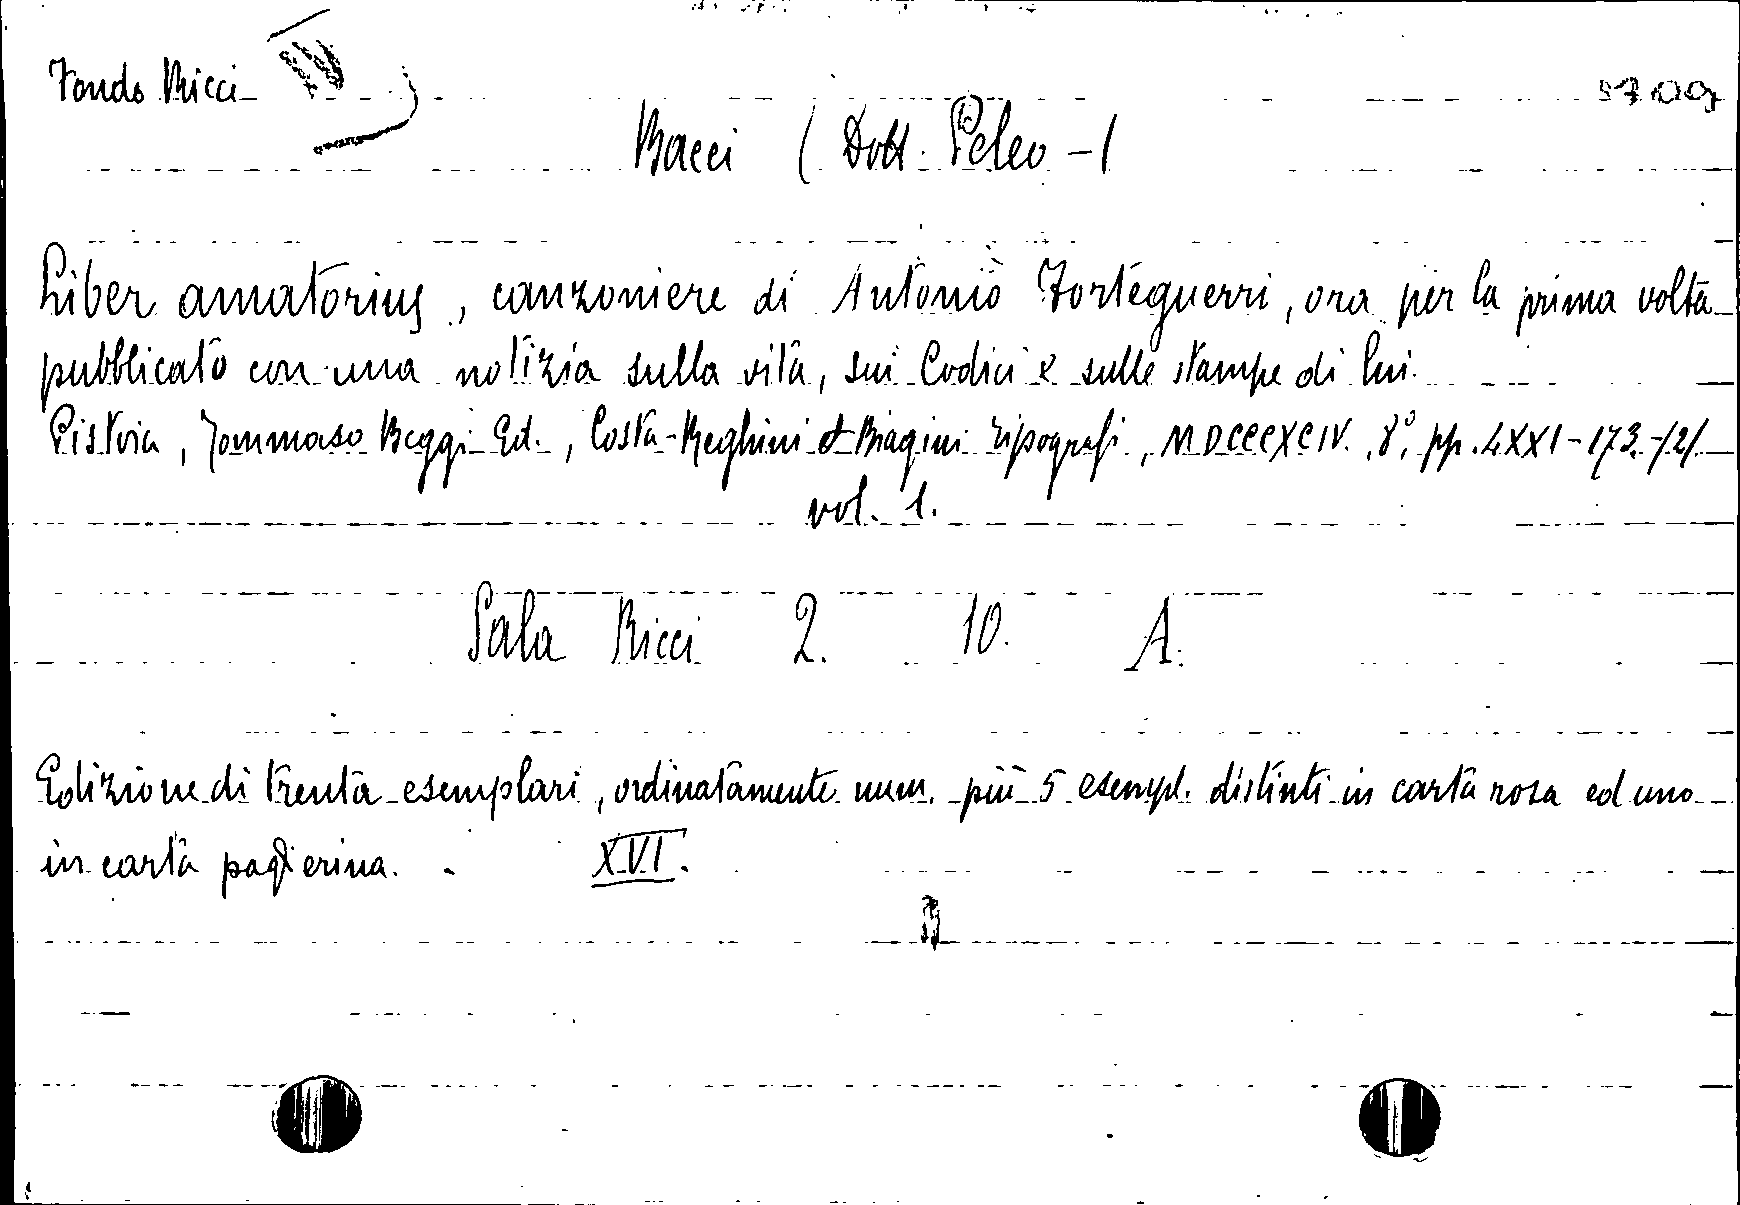 Fondo Ricci
Bacci (Dott. Peleo -)
Liber amatorius, canzoniere di Antonio Forteguerri, ora per la prima volta
pubblicato con una notizia sulla vita, sui Codici e sulle stampe di lui.
Pistoia, Tommaso Beggi Ed., Costa-Reghini et Biagini Tipografi, MDCCCXCIV., 8°, pp. LXXI-173.
vol. 1.
Sala Ricci 2. 10. A.
Edizione di trenta esemplari, ordinatamente num. più 5 esempl. distinti in carta rosa ed uno
in carta paglierina. XVI.